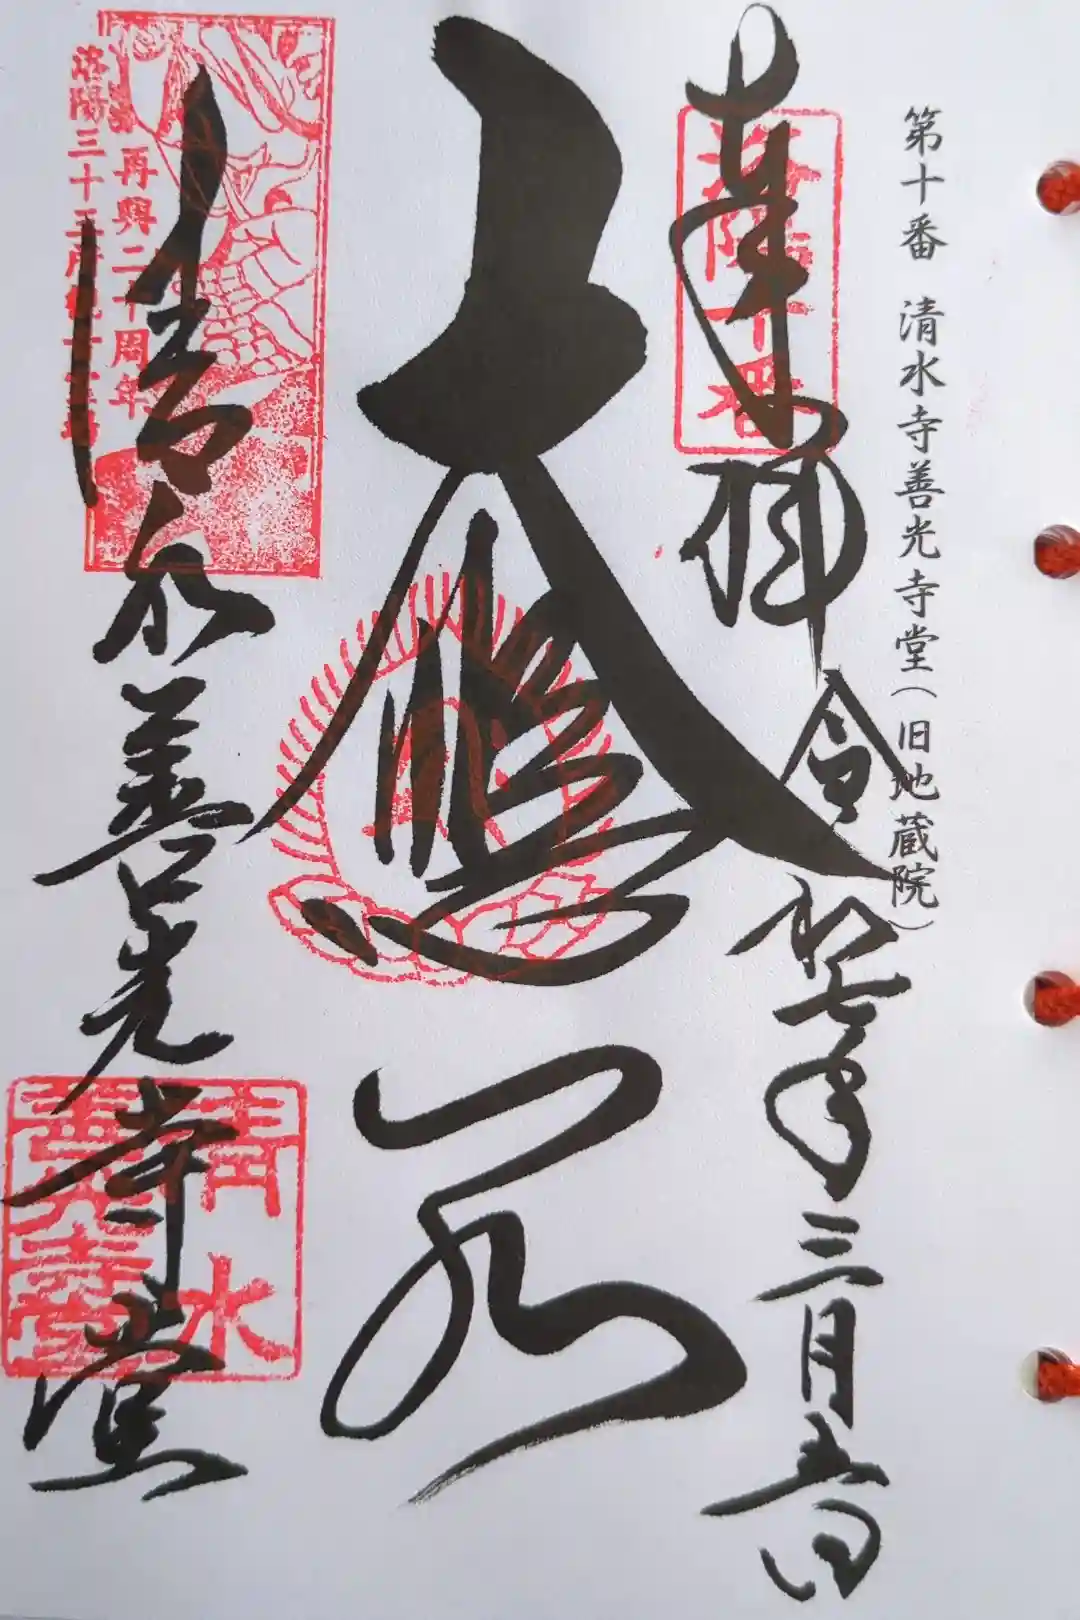 第十番 清水寺善光寺堂（旧地蔵院）
奉拝 令和七年三月五日
洛陽十番
大悲閣
再興二十周年
洛陽三十三所観音霊場
清水善光寺堂
清水
善光寺堂